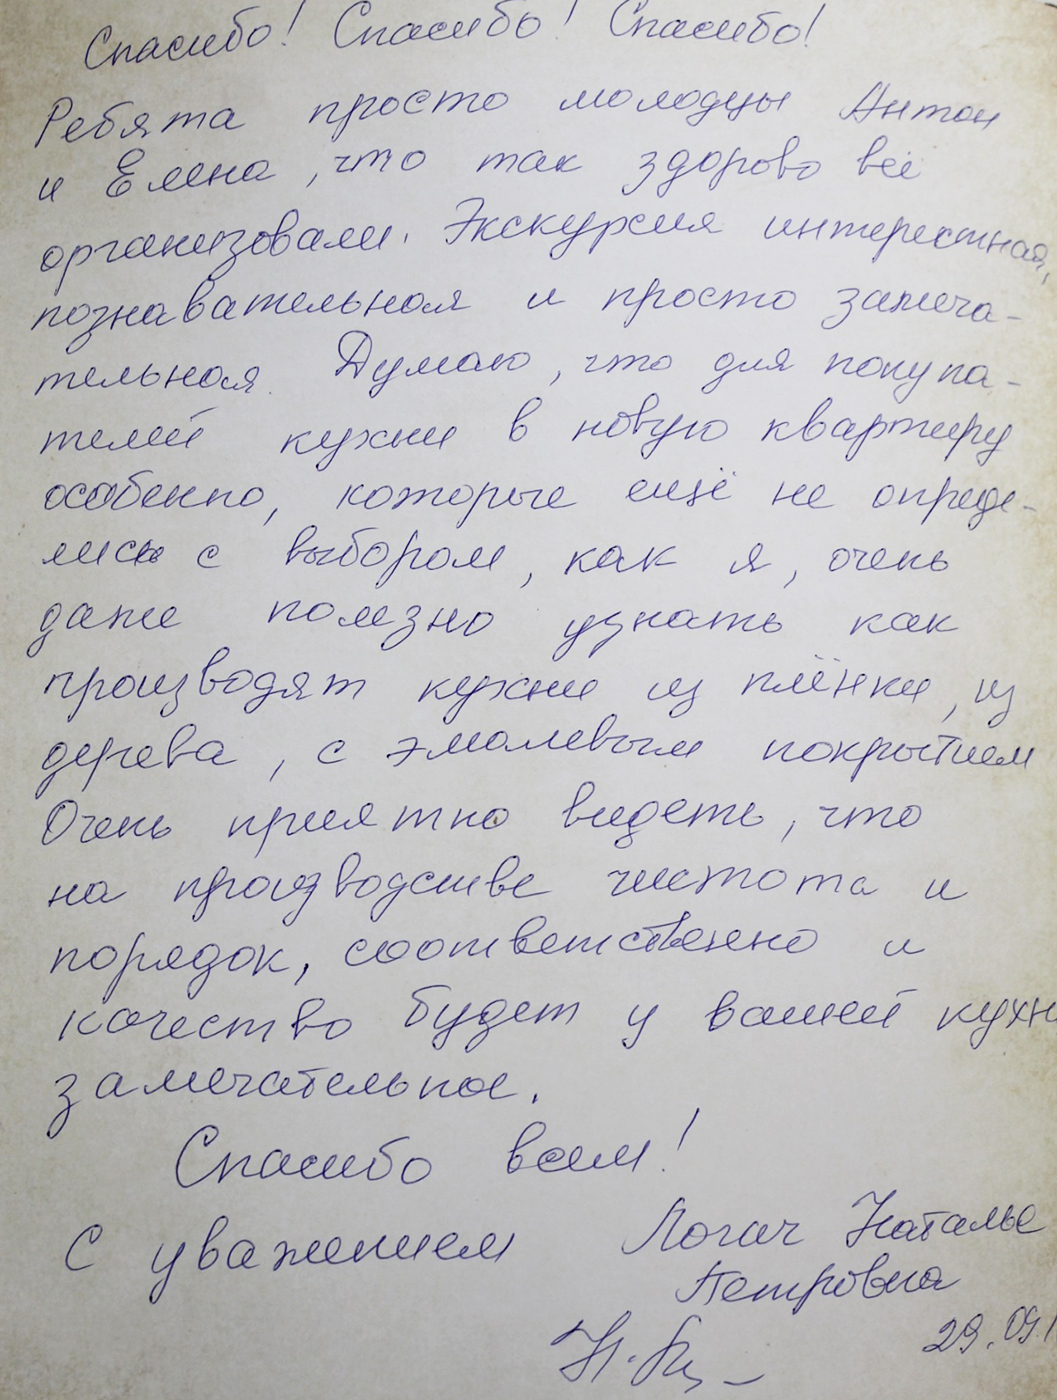 Спасибо! Спасибо! Спасибо!
Ребята просто молодцы Антон
и Елена, что так здорово всё
организовали. Экскурсия интересная,
познавательная и просто замеча-
тельная. Думаю, что для покупа-
телей кухни в новую квартиру
особенно, которые ещё не опреде-
лись с выбором, как я, очень
даже полезно узнать как
производят кухни из плёнки, из
дерева, с эмалевым покрытием
Очень приятно видеть, что
на производстве чистота и
порядок, соответственно и
качество будет у вашей кухн
замечательное.
Спасибо всем!
С уважением Логач Наталье
Петровна
29.09.1